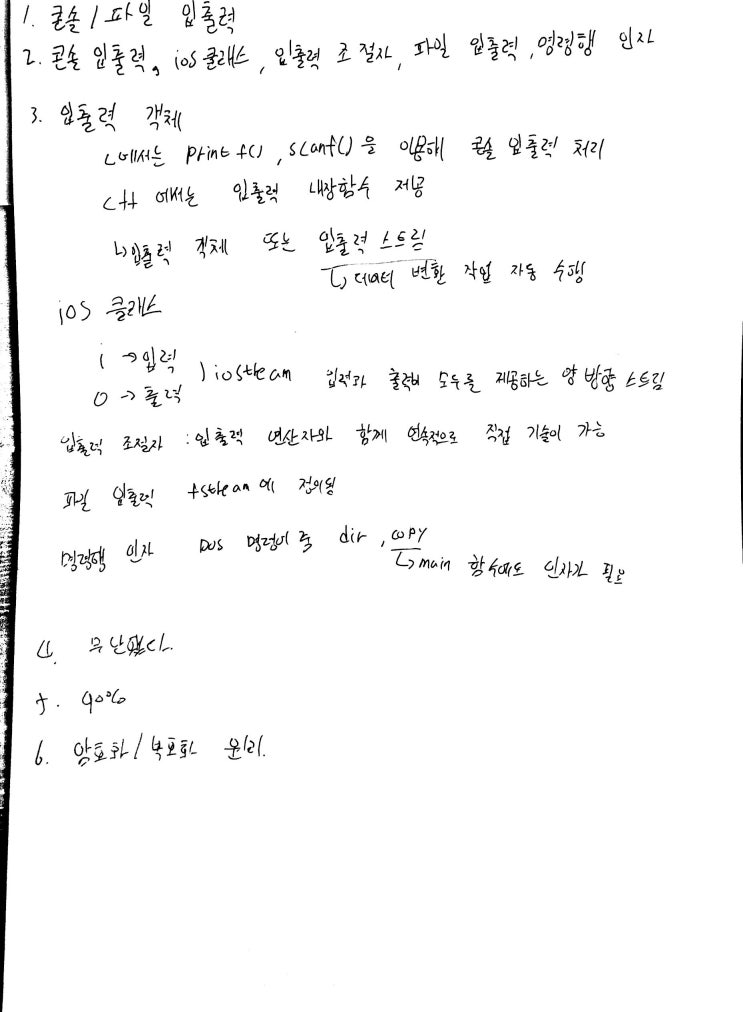 1. 콘솔 / 파일 입출력
2. 콘솔 입출력, ios 클래스, 입출력 조절자, 파일 입출력, 명령행 인자
3. 입출력 객체
C에서는 printf(), scanf()을 이용해 콘솔 입출력 처리
C++ 에서는 입출력 내장함수 제공
↳입출력 객체 또는 입출력 스트림
↳데이터 변환 작업 자동 수행
ios 클래스
i → 입력
) iostream 입력과 출력 모두를 제공하는 양방향 스트림
o → 출력
입출력 조절자 : 입출력 연산자와 함께 연속적으로 직접 기술이 가능
파일 입출력 fstream에 정의됨
명령행 인자 DOS 명령어 즉 dir, copy
↳main 함수에도 인자가 필요
4. 무난했다.
5. 90%
6. 암호화/복호화 원리.